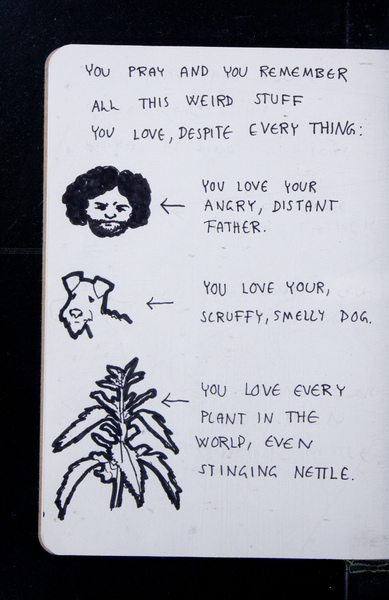 YOU PRAY AND YOU REMEMBER
ALL THIS WEIRD STUFF
YOU LOVE, DESPITE EVERY THING:
YOU LOVE YOUR
ANGRY, DISTANT
FATHER.
YOU LOVE YOUR,
SCRUFFY, SMELLY DOG.
YOU LOVE EVERY
PLANT IN THE
WORLD, EVEN
STINGING NETTLE.